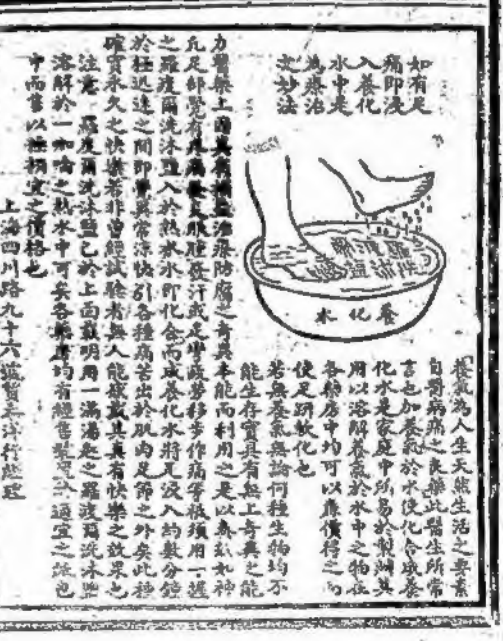 如有足
痛即浸
入養化
水中是
為療治
之妙法
羅渡爾
洗沐鹽
養化水
「養氣為人生天然生活之要素
自醫病痛之良藥此醫生所常
言也加養氣於水使化合成養
化水是家庭中所易於製辦其
用以溶解養氣於水中之物在
各藥房中均可以廉價得之而
使足趼軟化也
若無養氣無論何種生物均不
能生存實具有無上奇異之能
力醫藥上因其有補益治療防腐之奇異本能而利用之是以無論如何
凡足部覺有疼痛腫發汗或足疲勞移步作痛等祗須用一握
之羅渡爾洗沐鹽入於熱水水即化合而成養化水將足浸入約數分鐘
於極迅速之間即覺異常涼快引各種病苦出於肌肉足節之外矣此種
確實永久之快樂若非曾經試驗者無人能感其具有快樂之效果也
注意 羅渡爾洗沐鹽已於上面載明用一滿湯匙之羅渡爾洗沐鹽
溶解於一加侖之熱水中可矣各藥房均有經售裝適宜之包
中而售以極相宜之價格也
上海四川路九十六號貿洋行經理